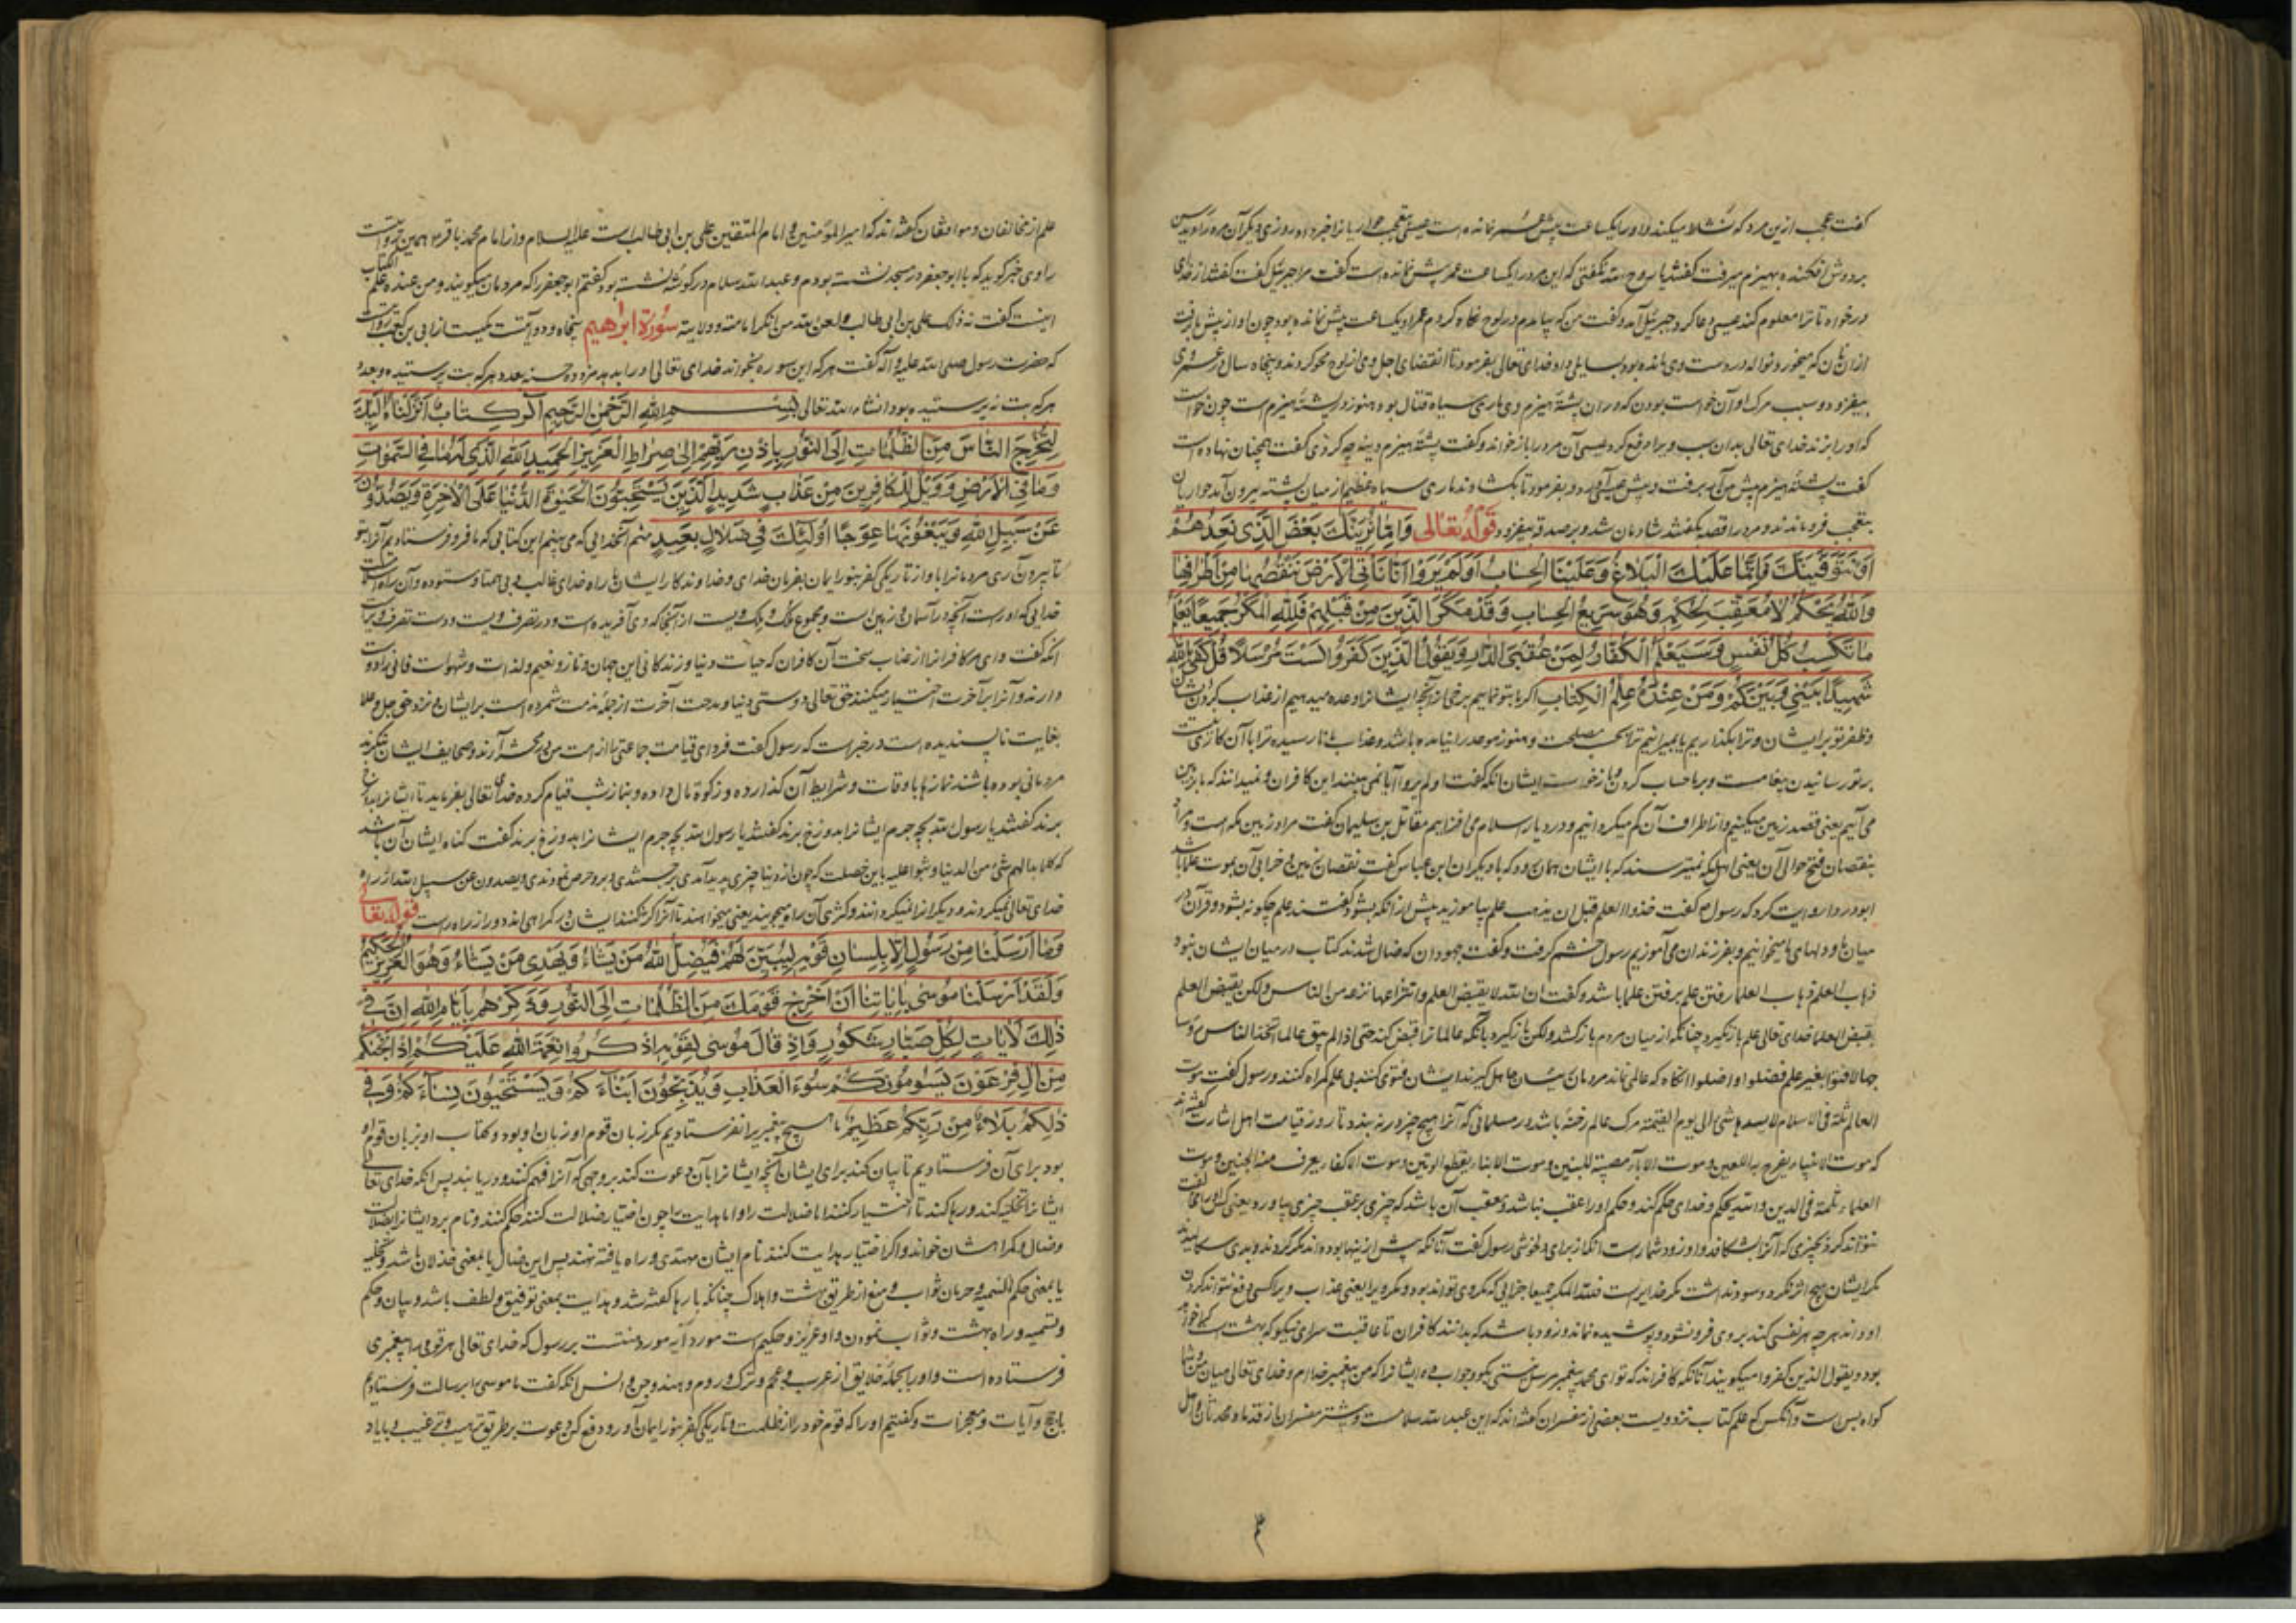 گفت عجب ازین مرد که میکند و او را یکساعت پیش عمر نمانده است عیسی بتعجب حواریانرا خبر داد روز دیگر آن مرد را دیدند
بر دوش افکنده بهیزم میرفت گفتند یا روح الله نگفتی که این مرد را یکساعت عمر پیش نمانده است گفت مرا جبرئیل گفت گفتند از خدای
درخواه تا ترا معلوم کند عیسی دعا کرد جبرئیل آمد و گفت من که بیامدم در لوح نگاه کردم عمر او یکساعت پیش نمانده بود چون او از پیش بازرفت
از آن نان که میخورد نواله در دست وی مانده بود بسایلی داد خدای تعالی بفرمود تا انقضای اجل وی از لوح محو کردند و پنجاه سال در عمر وی
بیفزود و سبب مرگ او آن خواست بودن که در آن پشته هیزم وی ماری سیاه قتال بود هنوز در پشته هیزم است چون خواست
که او را بزند خدای تعالی بدان سبب ویرا دفع کرد عیسی آن مرد را بازخواند و گفت پشته هیزم دینه چه کردی گفت همچنان نهاده است
گفت پشته هیزم پیش من آر برفت و پیش عیسی آورد و بفرمود تا بگشاوند ماری سیاه عظیم از میان پشته بیرون آمد حواریان
بتعجب فرو ماندند و مرد را قصه بگفتند شادمان شد و بر صدقه بیفزود قوله تعالی وَاِمَّا نُرِیَنَّكَ بَعْضَ الَّذِی نَعِدُهُمْ
اَوْ نَتَوَفَّیَنَّكَ فَاِنَّمَا عَلَیْكَ الْبَلَاغُ وَعَلَیْنَا الْحِسَابُ اَوَلَمْ یَرَوْا اَنَّا نَاْتِی الْاَرْضَ نَنْقُصُهَا مِنْ اَطْرَافِهَا
وَاللّٰهُ یَحْكُمُ لَا مُعَقِّبَ لِحُكْمِهِ وَهُوَ سَرِیعُ الْحِسَابِ وَقَدْ مَكَرَ الَّذِینَ مِنْ قَبْلِهِمْ فَلِلّٰهِ الْمَكْرُ جَمِیعًا یَعْلَمُ
مَا تَكْسِبُ كُلُّ نَفْسٍ وَسَیَعْلَمُ الْكُفَّارُ لِمَنْ عُقْبَی الدَّارِ وَیَقُولُ الَّذِینَ كَفَرُوا لَسْتَ مُرْسَلًا قُلْ كَفَی بِاللّٰهِ
شَهِیدًا بَیْنِی وَبَیْنَكُمْ وَمَنْ عِنْدَهُ عِلْمُ الْكِتَابِ اگر ما بتو نماییم برخی از آنچه ایشانرا وعده میدهیم از عذاب کردن ایشان
و ظفر تو بر ایشان و ترا بگذاریم یا بمیرانیم ترا بحسب مصلحت و هنوز موعد را نیامده باشد و عذاب بایشان نارسیده ترا با آن کاری نیست
بر تو رسانیدن پیغامست و بر ما حساب کردن و بازخواست ایشان آنکه گفت اولم یروا آیا نمی بینند این کافران و نمیدانند که ما بزمین
می آییم یعنی قصد زمین میکنیم و از اطراف آن کم میگردانیم و در دیار اسلام می افزاییم مقاتل بن سلیمان گفت مراد زمین مکه است و مراد
بنقصان فتح حوالی آن یعنی اهل مکه نمیترسند که با ایشان همان رود که با دیگران ابن عباس گفت نقصان زمین خرابی آن بموت علما باشد
ابودردا روایت کرد که رسول ص گفت خذوا العلم قبل ان یذهب علم بیاموزید پیش از آنکه بشود گفتند علم چگونه بشود و قرآن در
میان ما و دلهای ما میخوانیم و بفرزندان می آموزیم رسول خشم گرفت و گفت جهودان که ضال شدند کتاب در میان ایشان نبود
ذهاب العلم ذهاب العلماء رفتن علم برفتن علما باشد و گفت ان الله لا یقبض العلم انتزاعا ینتزعه من الناس ولکن یقبض العلم
بقبض العلماء خدای تعالی علم بازنگیرد چنانکه از میان مردم بازکشد ولکن بازگیرد بآنکه عالمانرا قبض کند حتی اذا لم یبق عالما اتخذ الناس رؤسا
جهالا فافتوا بغیر علم فضلوا واضلوا آنگاه که عالمی نماند مردمان رئیسان جاهل گیرند ایشان فتوی کنند بی علم گمراه کنند و رسول گفت موت
العالم ثلمة فی الاسلام لا یسدها شیء الی یوم القیمة مرگ عالم رخنه باشد در مسلمانی که آنرا هیچ چیز در نه بندد تا روز قیامت اهل اشارت گفته اند
که موت الانبیاء یفرح به اللعین و موت الآباء مصیبة للبنین و موت الابناء یقطع الوتین و موت
العلماء ثلمة فی الدین والله یحکم و خدای حکم کند و حکم او را عقب نباشد و معقب آن باشد که چیزی بر عقب چیزی بیاورد یعنی کس او را مخالفت
نتواند کرد بچیزی که آنرا بشکافد و او زود شمارست آنکه از برای دلخوشی رسول گفت آنانکه پیش از اینها بودند مکر کردند و بدی سگالیدند
مکر ایشان هیچ اثر نکرد و سود نداشت مکر خدایراست فلله المکر جمیعا جزایی که مکر وی تواند بود و مکر ویرا یعنی عذاب ویرا کسی دفع نتواند کردن
او داند هر چه هر نفسی کند بر وی فرو نشود و پوشیده نماند و زود باشد که بدانند کافران تا عاقبت سرای نیکو که بهشت است کرا خواهد
بود و یقول الذین کفروا میگویند آنانکه کافرند که تو ای محمد پیغمبر مرسل نیستی بگو و جواب ده ایشانرا که من پیغمبر خدا ام و خدای تعالی میان من و شما
گواه بس است و آنکس که علم کتاب نزد ویست بعضی از مفسران گفته اند که ابن عبدالله سلامست و بیشتر مفسران از قدما و محدثان و اهل
۳
علم از مخالفان و موافقان گفته اند که امیرالمؤمنین و امام المتقین علی بن ابی طالب است علیه السلام و از امام محمد باقر همین روایت است
راوی خبر گوید که با ابوجعفر در مسجد نشسته بودم و عبدالله سلام در گوشه نشسته بود گفتم ابوجعفر را که مردمان میگویند و من عنده علم الکتاب
اینست گفت نه ذلک علی بن ابی طالب و لعن الله من انکر امامته و ولایته سورة ابراهیم پنجاه و دو آیتست مکیست از ابی بن کعب روایت است
که حضرت رسول صلی الله علیه و آله گفت هر که این سوره بخواند خدای تعالی او را بدهد مزد ده حسنه بعدد هر که بت پرستیده و بعدد
هر که بت نه پرستیده بود انشاء الله تعالی بِسْمِ اللّٰهِ الرَّحْمٰنِ الرَّحِیمِ الٓرٰ كِتَابٌ اَنْزَلْنَاهُ اِلَیْكَ
لِتُخْرِجَ النَّاسَ مِنَ الظُّلُمَاتِ اِلَی النُّورِ بِاِذْنِ رَبِّهِمْ اِلٰی صِرَاطِ الْعَزِیزِ الْحَمِیدِ اَللّٰهِ الَّذِی لَهُ مَا فِی السَّمٰوَاتِ
وَمَا فِی الْاَرْضِ وَوَیْلٌ لِلْكَافِرِینَ مِنْ عَذَابٍ شَدِیدٍ الَّذِینَ یَسْتَحِبُّونَ الْحَیٰوةَ الدُّنْیَا عَلَی الْاٰخِرَةِ وَیَصُدُّونَ
عَنْ سَبِیلِ اللّٰهِ وَیَبْغُونَهَا عِوَجًا اُولٰئِكَ فِی ضَلَالٍ بَعِیدٍ منم آن خدایی که می بینم این کتابی که ما فرو فرستادیم آنرا بتو
تا بیرون آری مردمانرا باو از تاریکی کفر بنور ایمان بفرمان خدای و خداوندگار ایشان تا راه خدای غالب بی همتا و ستوده و آن راه است
خدایی که او راست آنچه در آسمان و زمین است و مجموع ملک و ملک ویست از آنجا که وی آفریده است و در تصرف ویست و دست تصرف ویراست
آنکه گفت وای مر کافرانرا از عذاب سخت آن کافران که حیات دنیا و زندگانی این جهان و ناز و نعیم و لذات و شهوات فانی را دوست
دارند و آنرا بر آخرت اختیار میکنند حق تعالی دوستی دنیا و مدحت آخرت از جمله مذمت شمرده است بر ایشان و نزد حق جل و علا
بغایت ناپسندیده است در خبر است که رسول گفت فردای قیامت جماعتی را از امت من بمحشر آرند و صحایف ایشان بنگرند
مردمانی بوده باشند نمازها باوقات و شرایط آن گذارده و زکوة مال داده و بنماز شب قیام کرده خدای تعالی بفرماید تا ایشانرا بدوزخ
برند گفتند یا رسول الله بچه جرم ایشانرا بدوزخ برند گفتند یا رسول الله بچه جرم ایشانرا بدوزخ برند گفت گناه ایشان آن باشد
که کلما بدا لهم شیء من الدنیا وثبوا علیه باین خصلت که چون از دنیا چیزی پدید آمدی برجستندی و برو حرص نمودندی و یصدون عن سبیل الله از راه
خدای تعالی میگردند و دیگرانرا میگردانند و کژی آن راه میجویند یعنی میخواهند تا آنرا کژ کنند ایشان در گمراهی اند دور از راه راست قوله تعالی
وَمَا اَرْسَلْنَا مِنْ رَسُولٍ اِلَّا بِلِسَانِ قَوْمِهِ لِیُبَیِّنَ لَهُمْ فَیُضِلُّ اللّٰهُ مَنْ یَشَاءُ وَیَهْدِی مَنْ یَشَاءُ وَهُوَ الْعَزِیزُ الْحَكِیمُ
وَلَقَدْ اَرْسَلْنَا مُوسٰی بِاٰیَاتِنَا اَنْ اَخْرِجْ قَوْمَكَ مِنَ الظُّلُمَاتِ اِلَی النُّورِ وَذَكِّرْهُمْ بِاَیَّامِ اللّٰهِ اِنَّ فِی
ذٰلِكَ لَاٰیَاتٍ لِكُلِّ صَبَّارٍ شَكُورٍ وَاِذْ قَالَ مُوسٰی لِقَوْمِهِ اذْكُرُوا نِعْمَةَ اللّٰهِ عَلَیْكُمْ اِذْ اَنْجٰیكُمْ
مِنْ اٰلِ فِرْعَوْنَ یَسُومُونَكُمْ سُوءَ الْعَذَابِ وَیُذَبِّحُونَ اَبْنَاءَكُمْ وَیَسْتَحْیُونَ نِسَاءَكُمْ وَفِی
ذٰلِكُمْ بَلَاءٌ مِنْ رَبِّكُمْ عَظِیمٌ ما هیچ پیغمبریرا نفرستادیم مگر بزبان قوم او زبان او بود و کتاب او بزبان قوم او
بود برای آن فرستادیم تا بیان کند برای ایشان آنچه ایشانرا بآن دعوت کند بر وجهی که آنرا فهم کنند و دریابند پس آنکه خدای تعالی
ایشانرا تخلیه کند و رها کند تا اختیار کنند اما ضلالت را و اما هدایت را چون اختیار ضلالت کنند حکم کند و نام برد ایشانرا بضلالت
و ضال و گمراهشان خواند و اگر اختیار هدایت کنند نام ایشان مهتدی و راه یافته نهند پس این ضلال یا بمعنی خذلان باشد و تخلیه
یا بمعنی حکم و تسمیه و حرمان ثواب و منع از طریق بهشت و اهلاک چنانکه بارها گفته شد و هدایت بمعنی توفیق و لطف باشد و بیان و حکم
و تسمیه و راه بهشت و ثواب نمودن و او عزیز و حکیم است مورد آیه مورد منتست بر رسول که خدای تعالی هر قومی را پیغمبری
فرستاده است و او را بجمله خلایق از عرب و عجم و ترک و روم و هند و جن و انس آنکه گفت ما موسی را برسالت فرستادیم
با حجج و آیات و معجزات و گفتیم او را که قوم خود را از ظلمت و تاریکی کفر بنور ایمان آور و دفع کن دعوت بر طریق ترهیب و ترغیب و با یاد